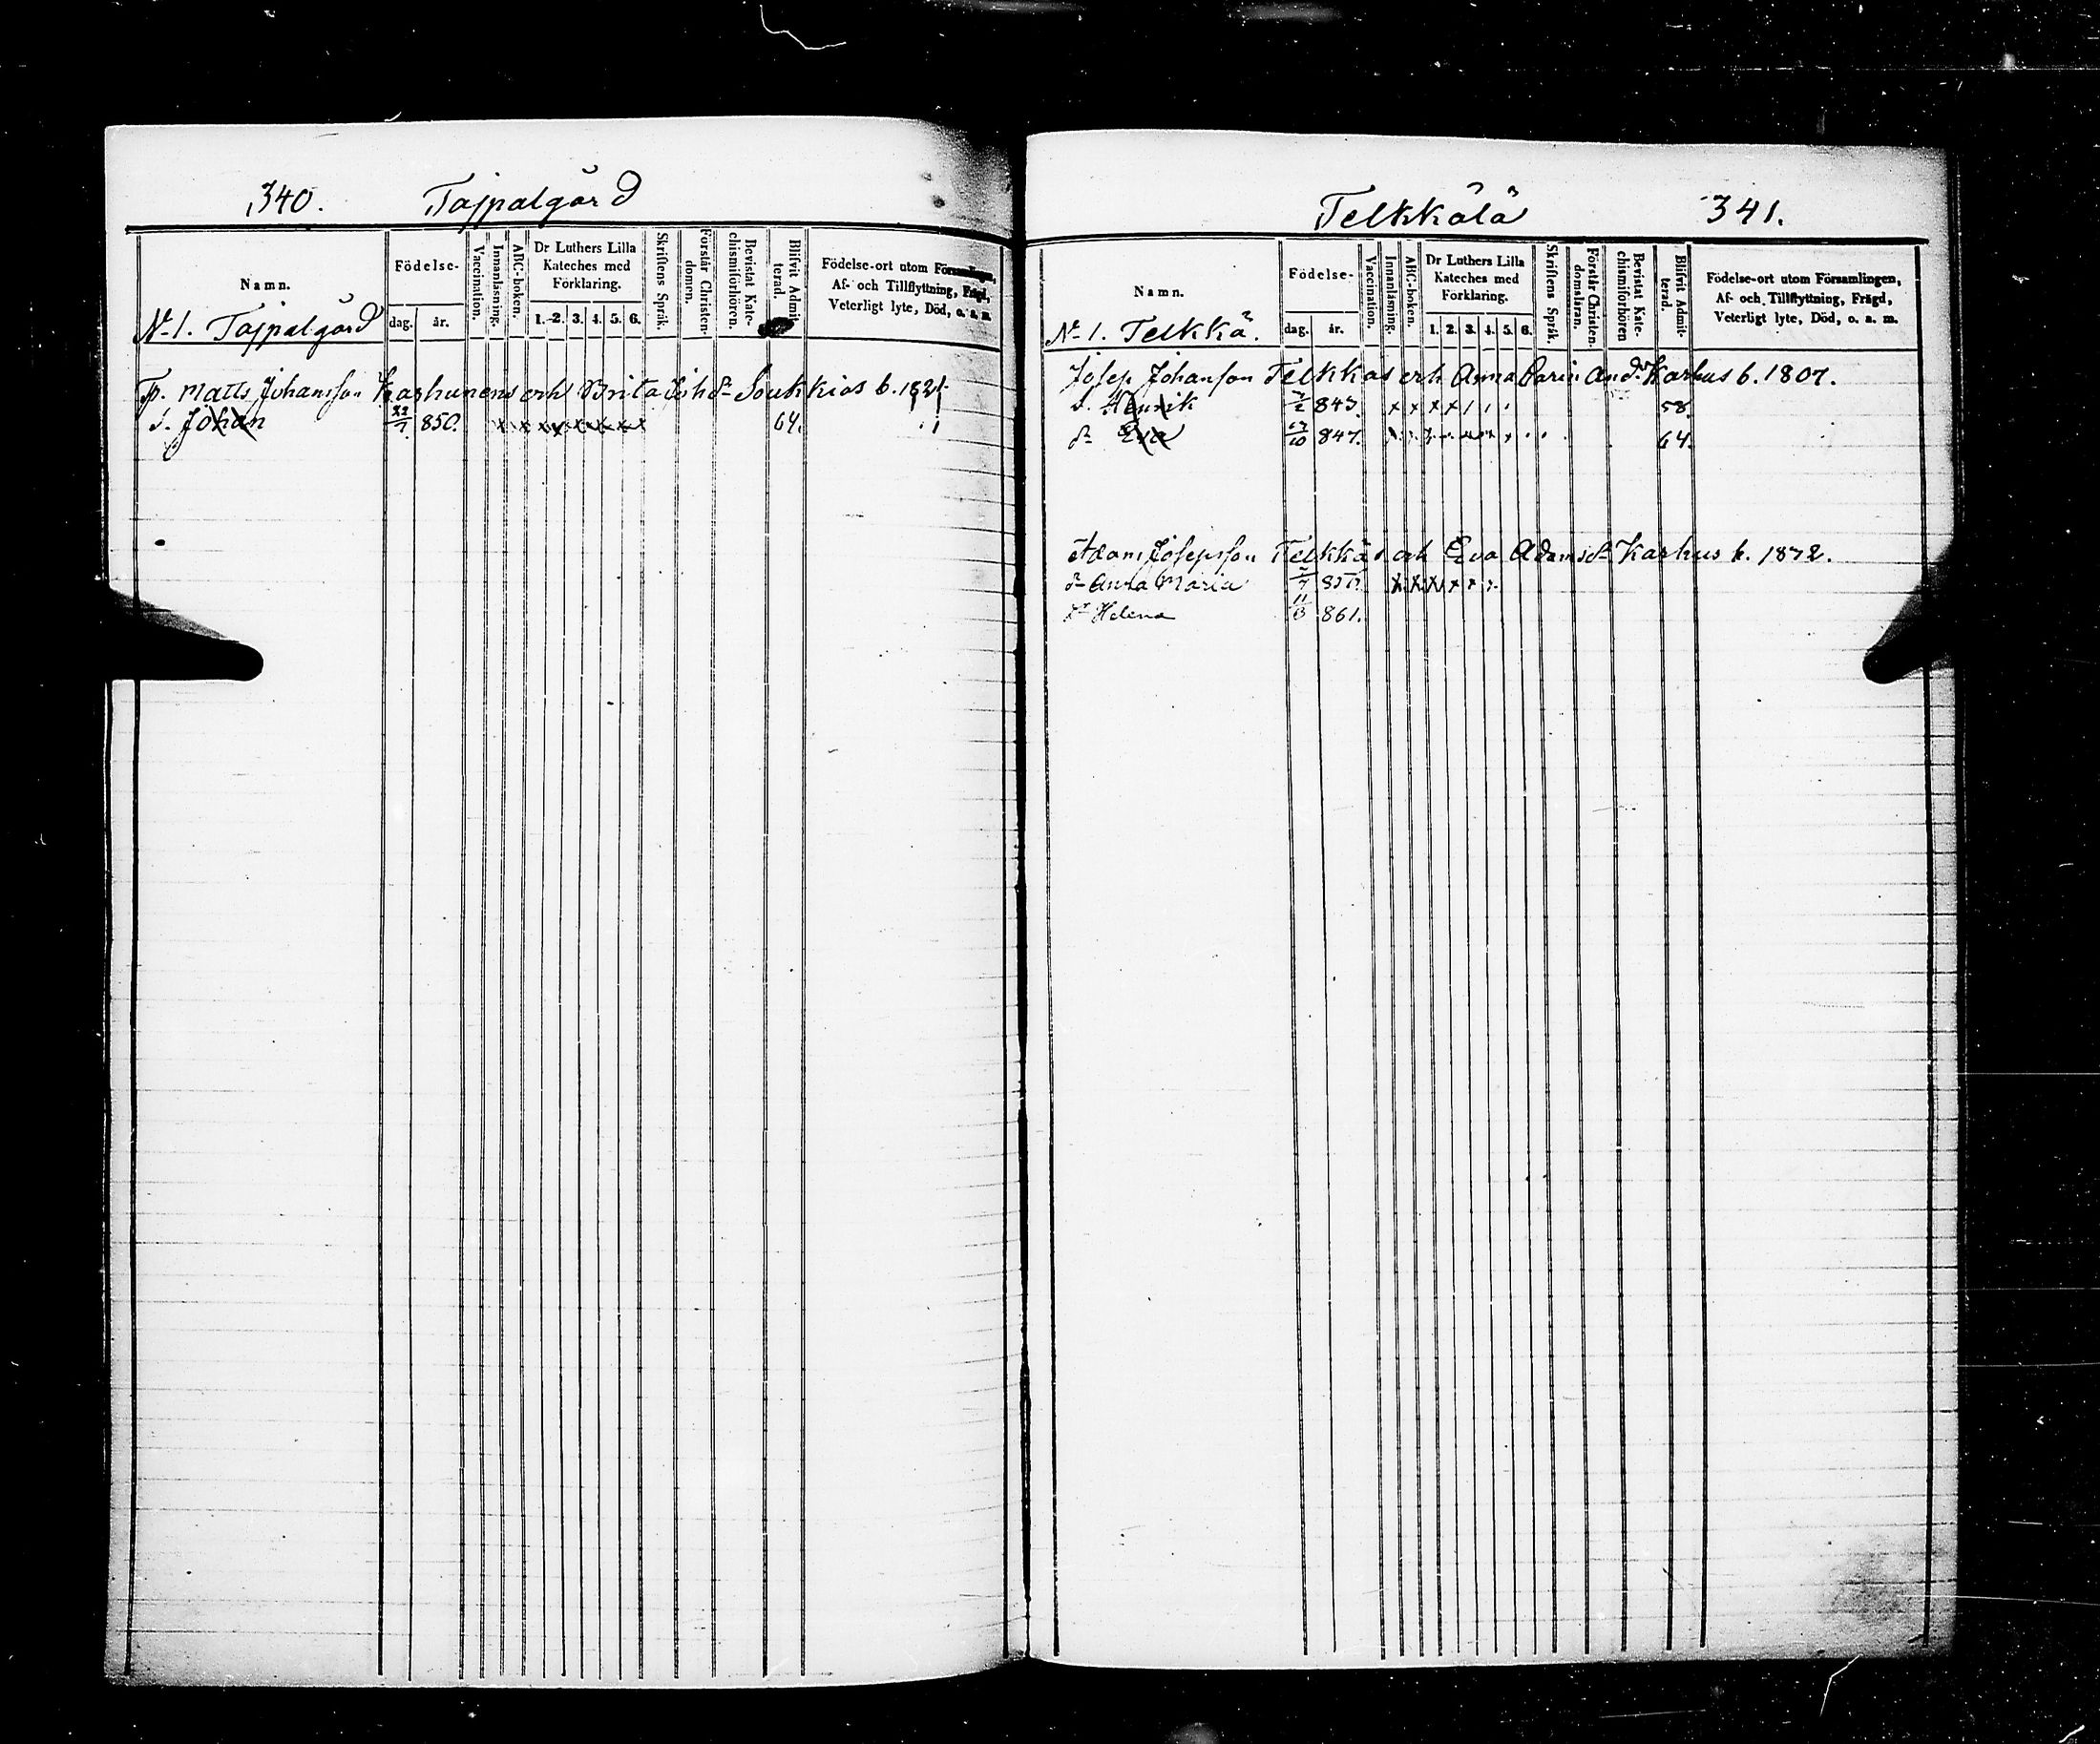 340. Tajpalgård
Namn.
Födelse-
dag. år.
Vaccination.
Innanläsning.
ABC-boken.
Dr Luthers Lilla Kateches med Förklaring.
1. 2. 3. 4. 5. 6.
Skriftens Språk.
Förstår Christendomen.
Bevistat Katechismiförhören.
Blifvit Admitterad.
Födelse-ort utom Församlingen,
Af- och Tillflyttning, Frägd,
Veterligt lyte, Död, o. a. m.
No 1. Tajpalgård
Tp. Matts Johansson Karhunens och Brita Johdr Soukkias b. 1821.
s. Johan 22/7 850. x x x x x x x x 64.
Telkkälä 341.
Namn.
Födelse-
dag. år.
Vaccination.
Innanläsning.
ABC-boken.
Dr Luthers Lilla Kateches med Förklaring.
1. 2. 3. 4. 5. 6.
Skriftens Språk.
Förstår Christendomsläran.
Bevistat Katechismiförhören
Blifvit Admitterad.
Födelse-ort utom Församlingen,
Af- och Tillflyttning, Frägd,
Veterligt lyte, Död, o. a. m.
No 1. Telkkä.
Josep Johanson Telkkäs och Anna Carin Anddr Karhus b. 1807.
s. Henrik 843. x x x x 58.
dr Eva 847. 64.
Adam Josepsson Telkkäs och Eva Adamsdr Karhus b. 1872.
dr Anna Maria x x x x x x
dr Helena 861.